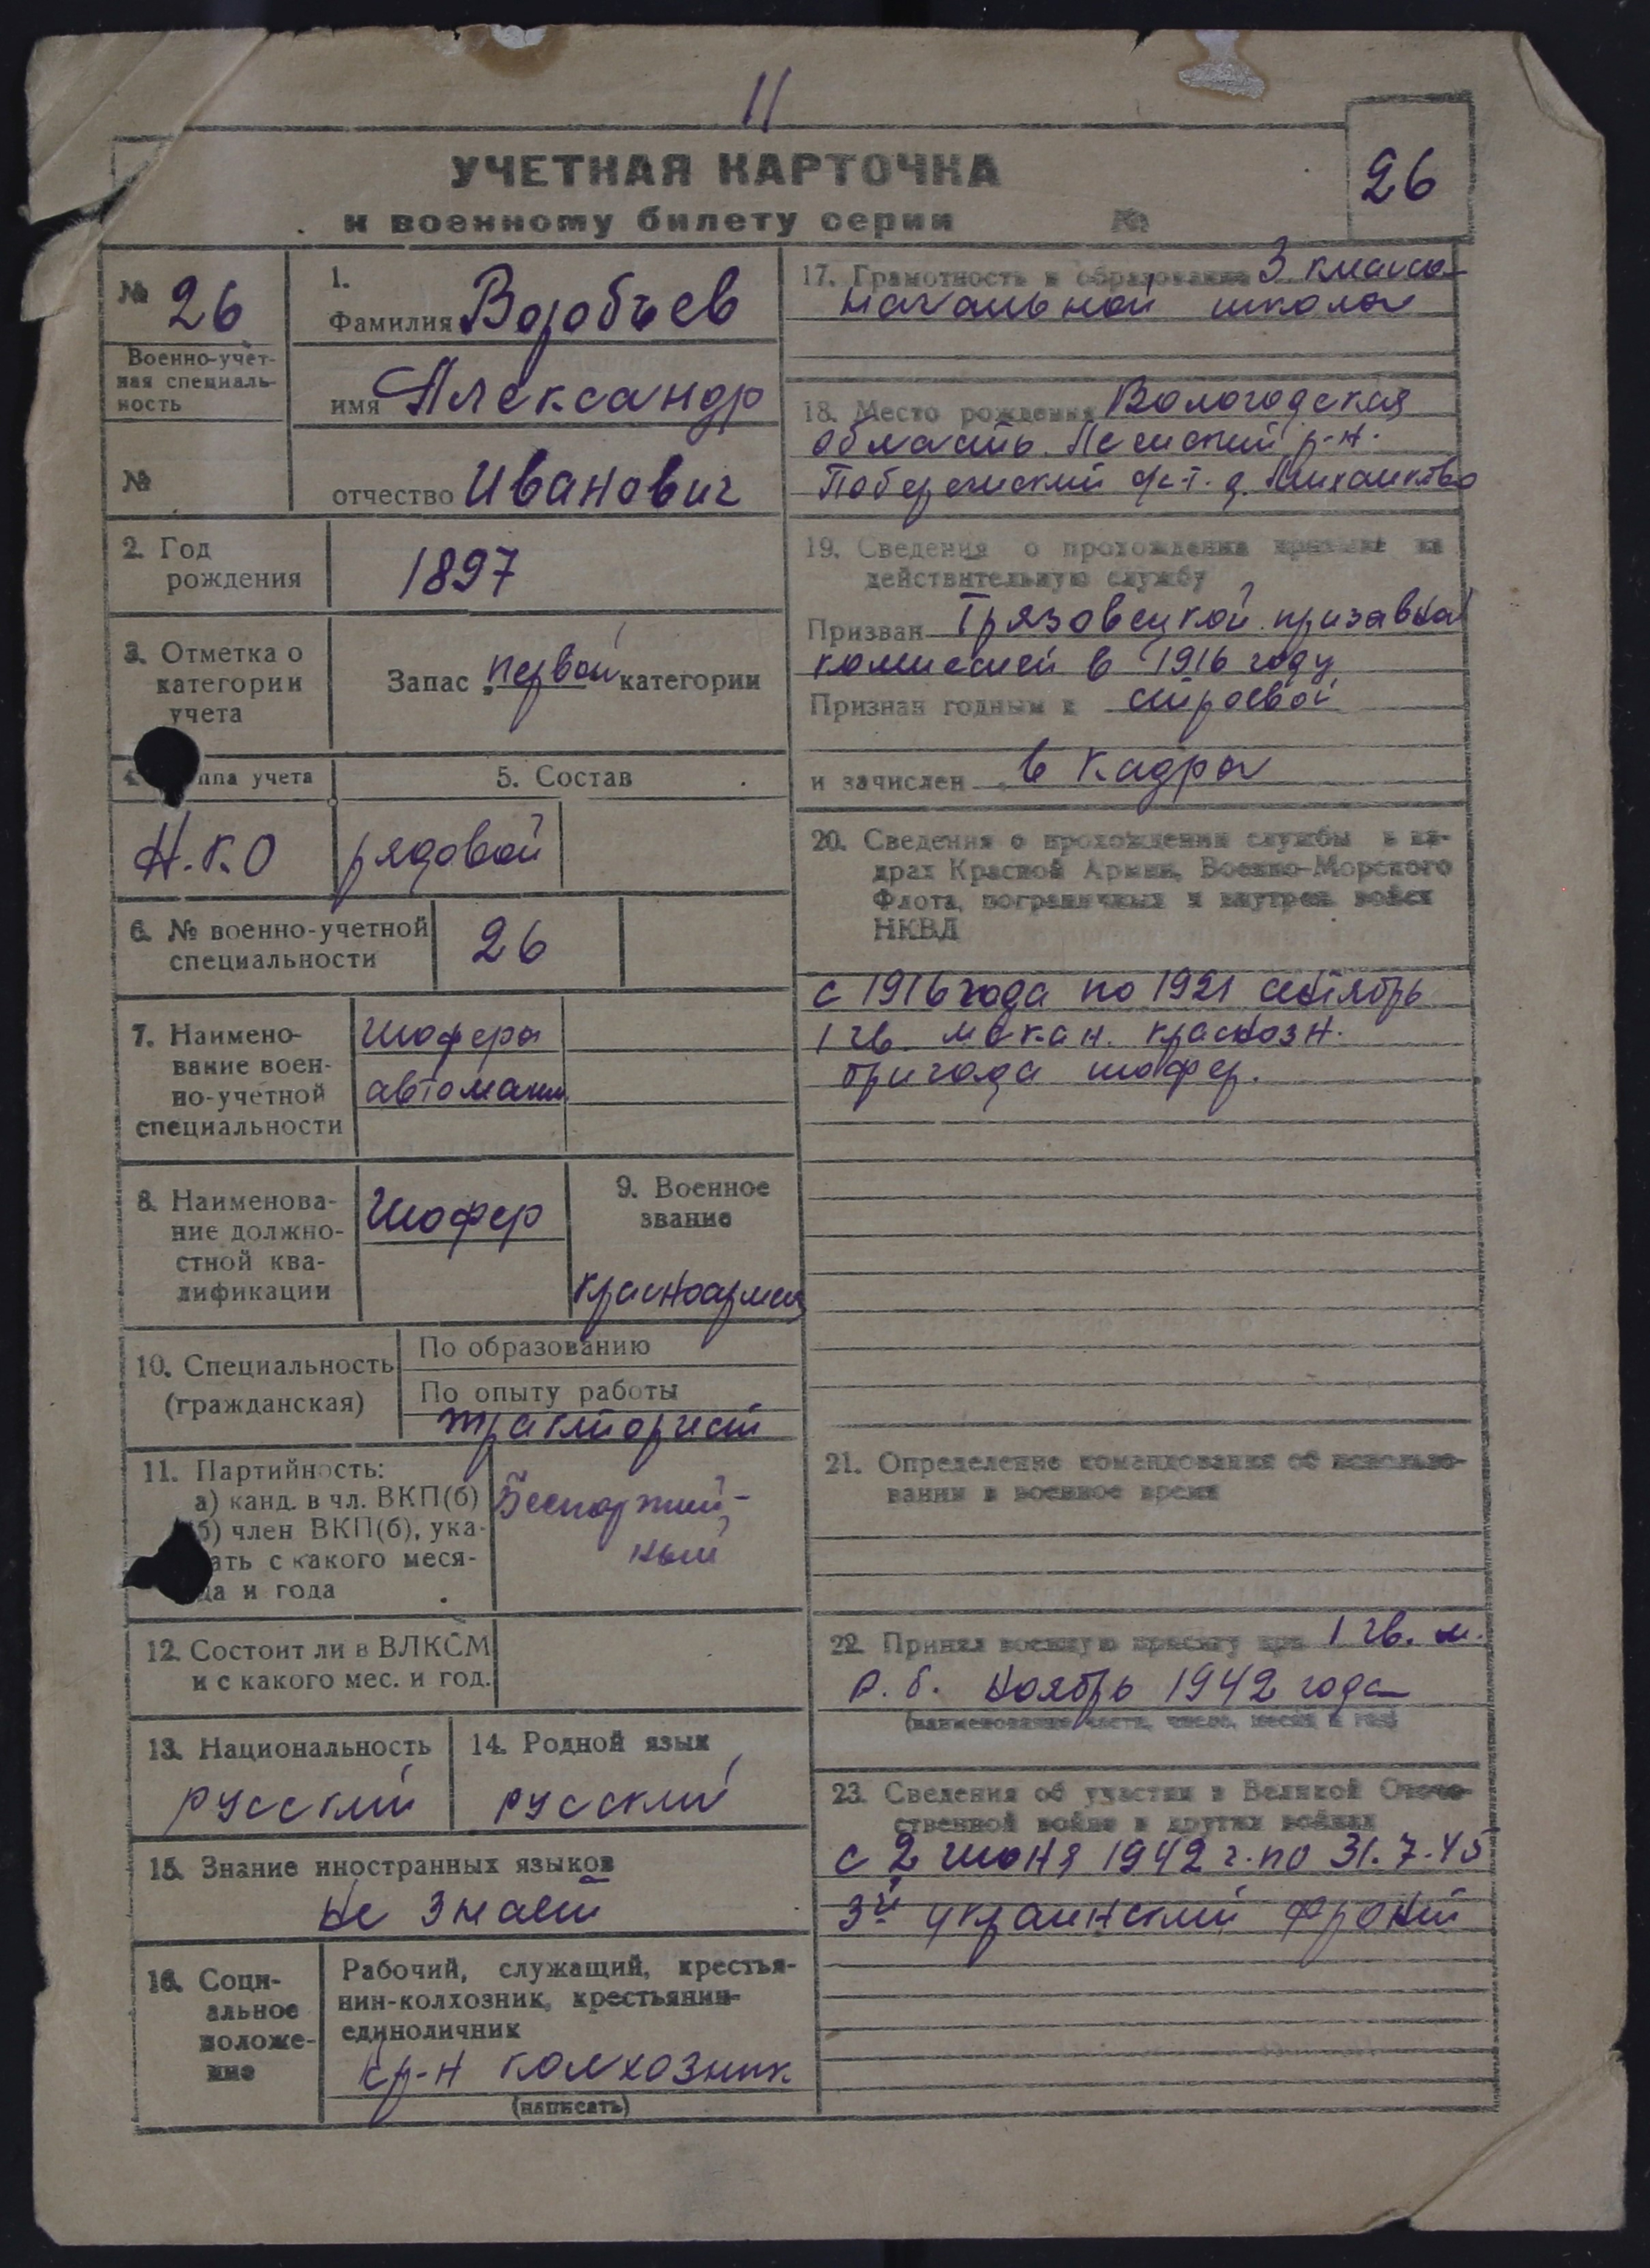 11
УЧЕТНАЯ КАРТОЧКА
к военному билету серии №
26
№ 26
Военно-учет-
ная специаль-
ность
№
1.
Фамилия Воробьев
имя Александр
отчество Иванович
2. Год
рождения
1897
3. Отметка о
категории
учета
Запас первой категории
4. ппа учета
5. Состав
Н.К.О
рядовой
6. № военно-учетной
специальности
26
7. Наимено-
вание воен-
но-учетной
специальности
Шофера
автомаши
8. Наименова-
ние должно-
стной ква-
лификации
Шофер
9. Военное
звание
красноармеец
10. Специальность
(гражданская)
По образованию
По опыту работы
тракторист
11. Партийность:
а) канд. в чл. ВКП(б)
б) член ВКП(б), ука-
ать с какого меся-
ца и года
Беспартий-
ный
12. Состоит ли в ВЛКСМ
и с какого мес. и год.
13. Национальность
русский
14. Родной язык
русский
15. Знание иностранных языков
не знает
16. Соци-
альное
положе-
ние
Рабочий, служащий, крестья-
нин-колхозник, крестьянин-
единоличник
кр-н колхозник
(написать)
17. Грамотность и образование 3 класса
начальной школы
18. Место рождения Вологодская
область. р-н.
с-т. д.
19. Сведения о прохождении призыва на
действительную службу
Призван Грязовецкой призывной
комиссией в 1916 году
Признан годным к строевой
и зачислен в кадры
20. Сведения о прохождении службы в ка-
драх Красной Армии, Военно-Морского
Флота, пограничных и внутрен. войск
НКВД
с 1916 года по 1921 октябрь
1 гв. механ. краснозн.
бригада шофер.
21. Определение командования об использо-
вании в военное время
22. Принял военную присягу при 1 гв. м.
р. б. ноябрь 1942 года
(наименование части, число, месяц и год)
23. Сведения об участии в Великой Отече-
ственной войне и других войнах
с 2 июня 1942 г. по 31.7.45
3й украинский фронт